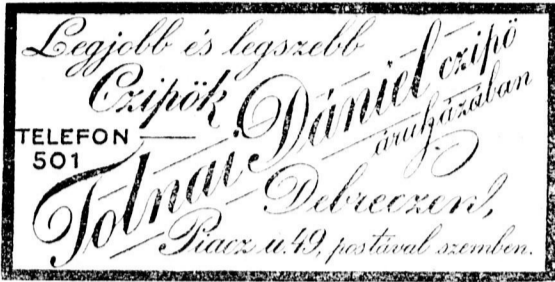 Legjobb és legszebb
Czipök
TELEFON
501
Tolnai Dániel czipö
áruházában
Debreczen,
Piacz u. 49, postával szemben.